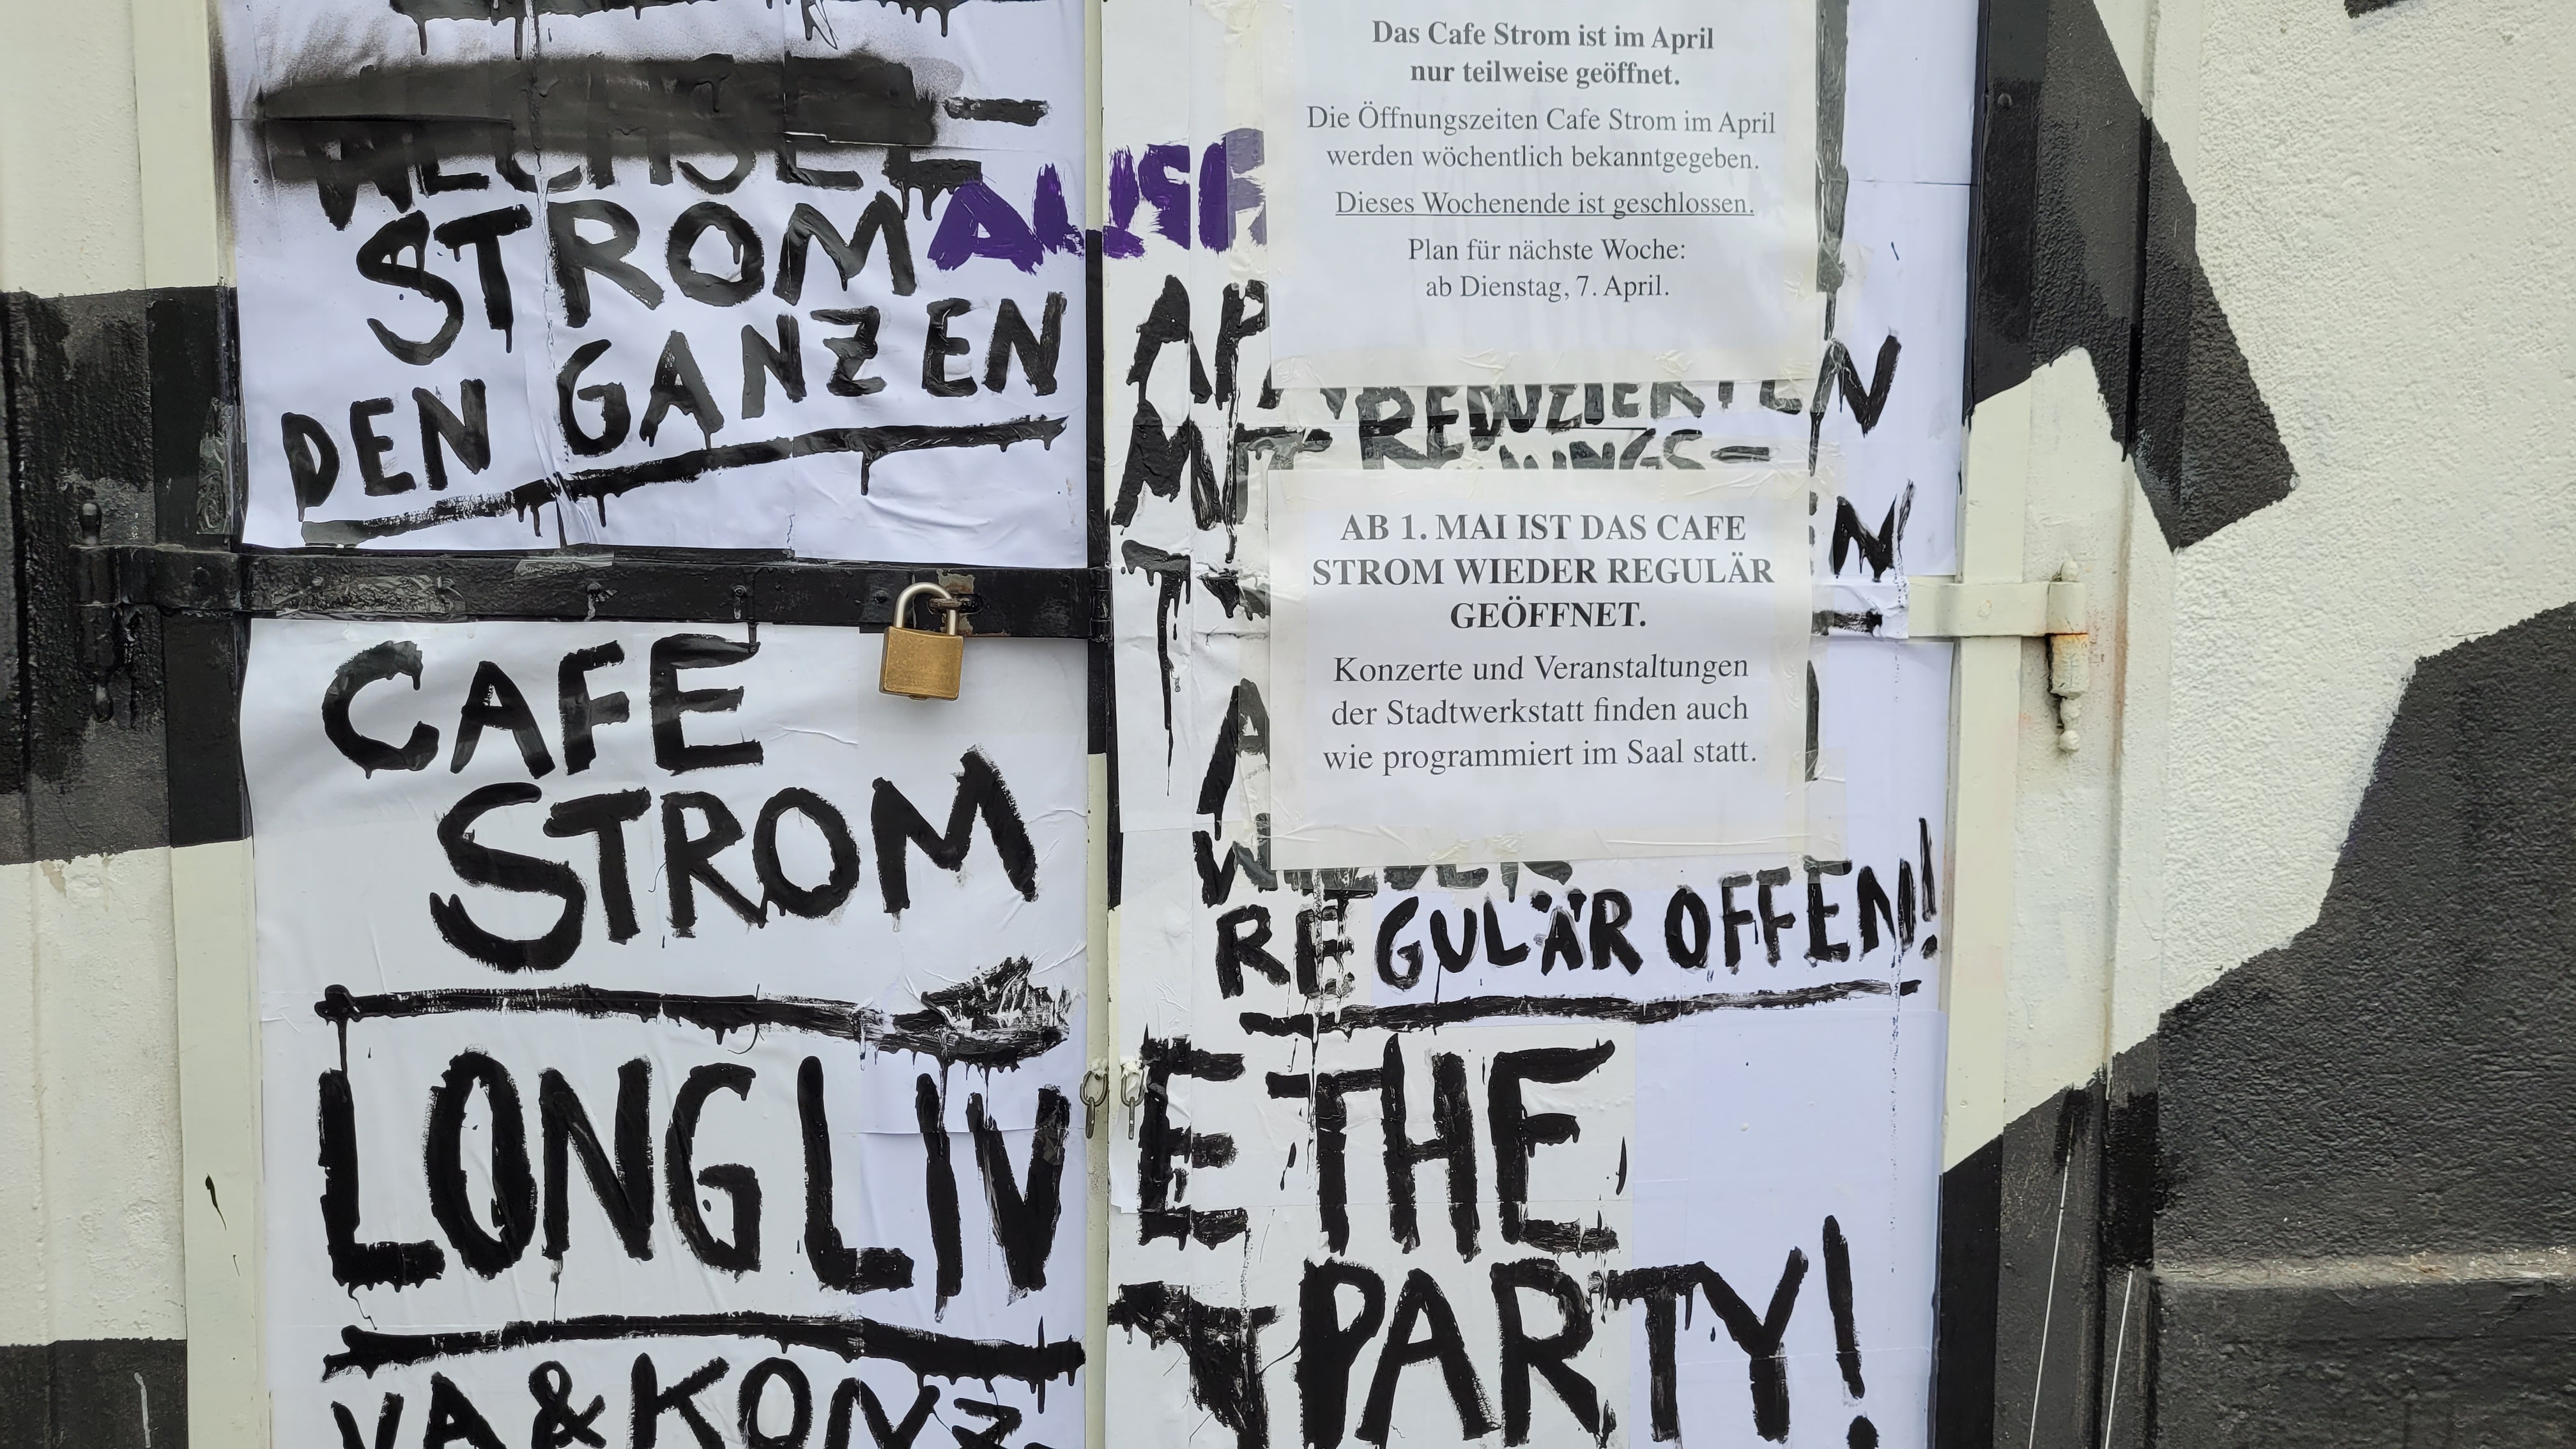 STROM
DEN GANZEN
CAFE
STROM
LONG LIVE THE
PARTY!
VA & KONZ
Das Cafe Strom ist im April
nur teilweise geöffnet.
Die Öffnungszeiten Cafe Strom im April
werden wöchentlich bekanntgegeben.
Dieses Wochenende ist geschlossen.
Plan für nächste Woche:
ab Dienstag, 7. April.
REDUZIERTEN
AB 1. MAI IST DAS CAFE
STROM WIEDER REGULÄR
GEÖFFNET.
Konzerte und Veranstaltungen
der Stadtwerkstatt finden auch
wie programmiert im Saal statt.
REGULÄR OFFEN!